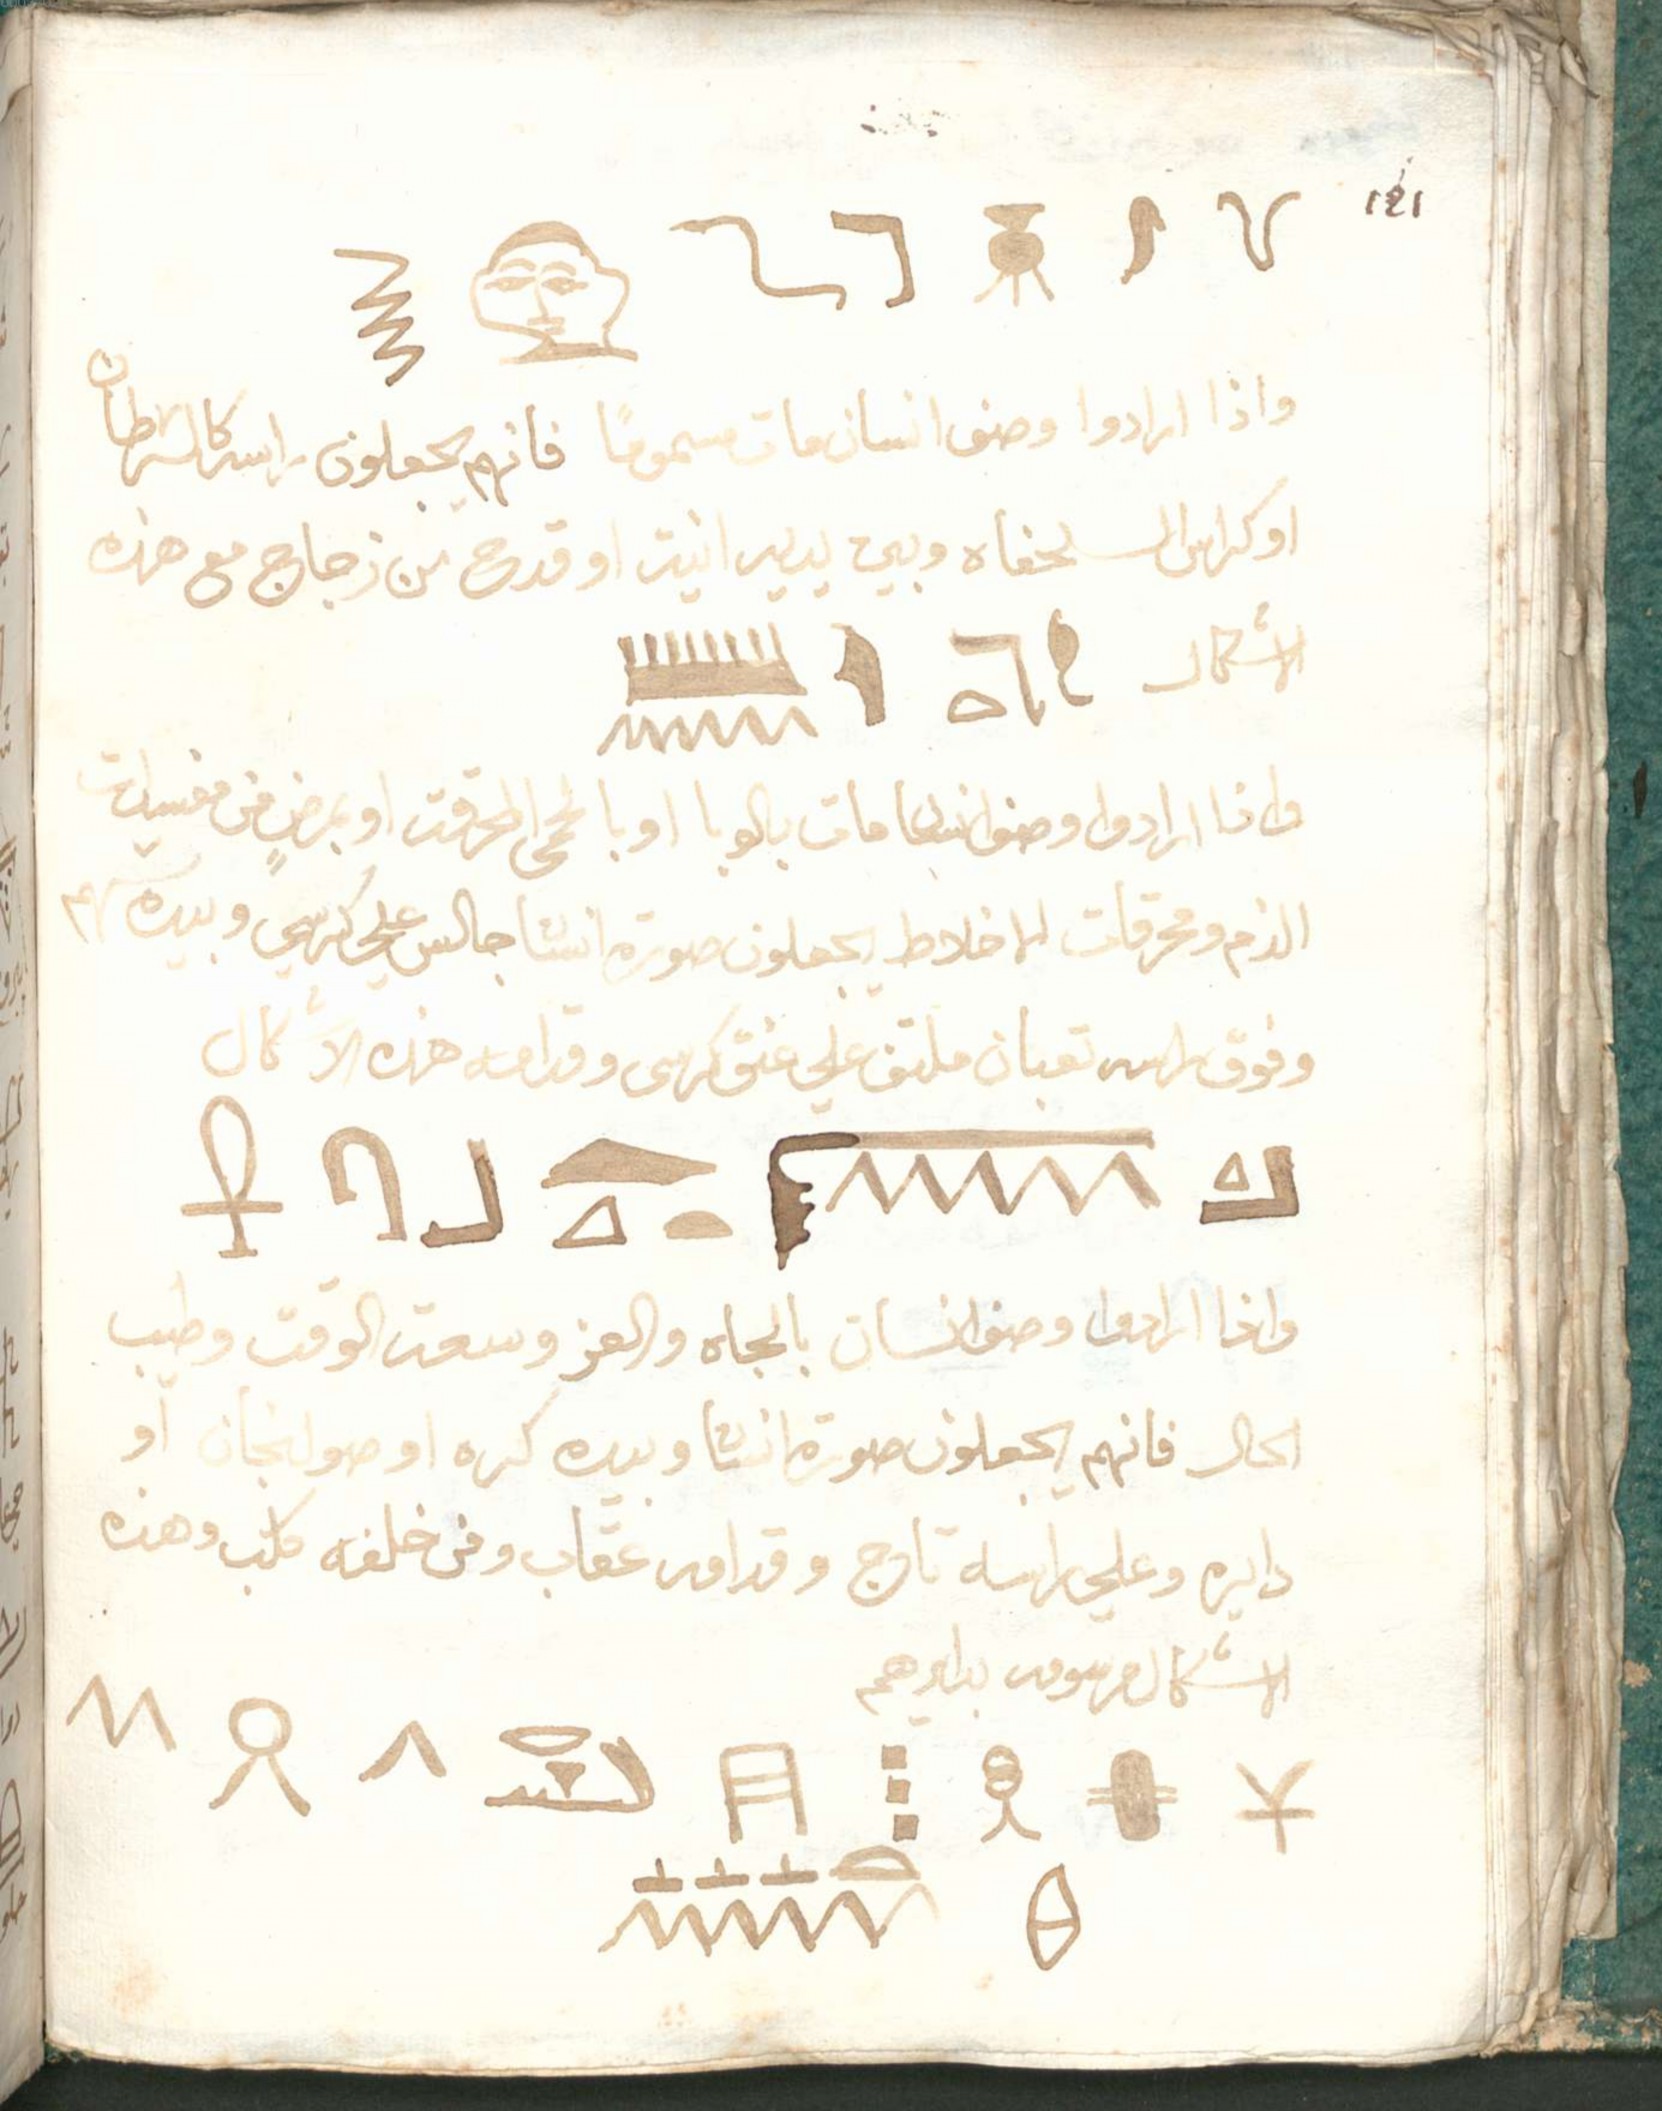 ١٤١
واذا ارادوا وصف انسان مات مسموما فانهم يجعلون راسه كالسرطان
او كراس السلحفاه وبين يديه انيت او قدح من زجاج مع هذه
الاشكال
واذا ارادوا وصف انسانا مات بالوبا او بالحمى المحرقت او بمرض من مفسدات
الدم ومحرقات الاخلاط يجعلون صورة انسانا جالس علي كرسي وبيده سهم
وفوق راسه تعبان ملتف علي عنق كرسي وقدامه هذه الاشكال
واذا ارادوا وصف انسان بالجاه والعز وسعت الوقت وطيب
الحال فانهم يجعلون صورة انسانا وبيده كره او صولنجان او
دايره وعلي راسه تاج وقدامه عقاب ومن خلفه كلب وهذه
الاشكال مرسومه بدايرهم